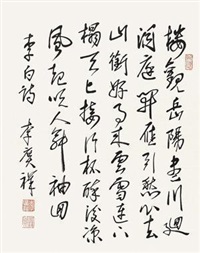 樓觀岳陽盡川迴
洞庭開雁引愁心去
山銜好月来雲間連下
榻天上接行杯醉後涼
風起吹人舞袖回
李白詩 李廣祥